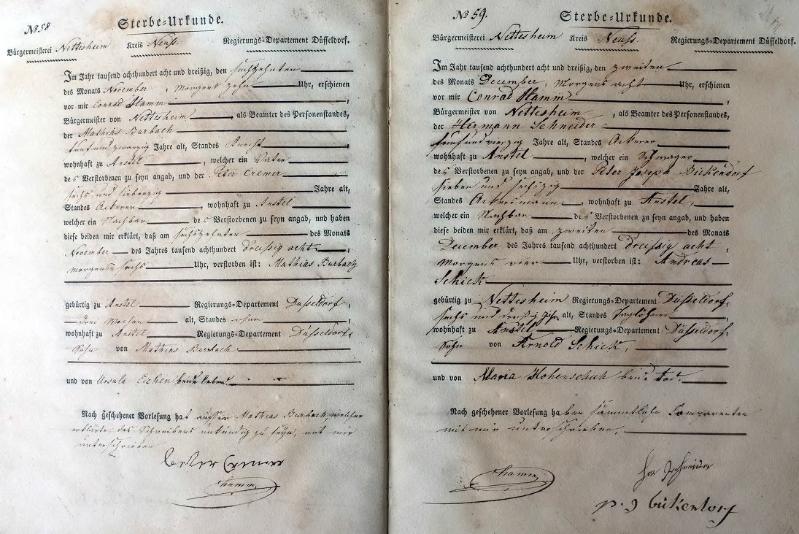 No 58
Sterbe-Urkunde.
Bürgermeisterei Nettesheim Kreis Neuss Regierungs-Departement Düsseldorf.
Im Jahr tausend achthundert acht und dreißig, den
des Monats November, Morgens zehn Uhr, erschienen
vor mir Conrad Hamm,
Bürgermeister von Nettesheim, als Beamter des Personenstandes,
der Mathias Burbach
Jahre alt, Standes
wohnhaft zu Anstel, welcher ein Vater
des Verstorbenen zu seyn angab, und der Peter Cremer
sechs und siebenzig Jahre alt,
Standes Ackerer, wohnhaft zu Anstel
welcher ein Nachbar des Verstorbenen zu seyn angab, und haben
diese beiden mir erklärt, daß am des Monats
November des Jahres tausend achthundert Dreissig acht,
morgens sechs Uhr, verstorben ist: Mathias Burbach
gebürtig zu Anstel Regierungs-Departement Düsseldorf,
alt, Standes
wohnhaft zu Anstel Regierungs-Departement Düsseldorf
Sohn von Mathias Burbach
und von Ursula
Nach geschehener Vorlesung hat Mathias Burbach, welcher
erklärte des Schreibens unkundig zu seyn, mit mir
unterschrieben
Peter Cremer
Hamm
No 59.
Sterbe-Urkunde.
Bürgermeisterei Nettesheim Kreis Neuss Regierungs-Departement Düsseldorf.
Im Jahr tausend achthundert acht und dreißig, den zweiten
des Monats December, Morgens acht Uhr, erschienen
vor mir Conrad Hamm,
Bürgermeister von Nettesheim, als Beamter des Personenstandes,
der Hermann Schneider
Jahre alt, Standes Ackerer
wohnhaft zu Anstel, welcher ein Schwager
des Verstorbenen zu seyn angab, und der Peter Joseph Bückendorf
sieben und Jahre alt,
Standes Ackersmann, wohnhaft zu Anstel,
welcher ein Nachbar des Verstorbenen zu seyn angab, und haben
diese beiden mir erklärt, daß am zweiten des Monats
December des Jahres tausend achthundert Dreissig acht,
Morgens vier Uhr, verstorben ist: Andreas
Schick
gebürtig zu Nettesheim Regierungs-Departement Düsseldorf,
sechs und dreißig Jahre alt, Standes Taglöhner
wohnhaft zu Anstel Regierungs-Departement Düsseldorf
Sohn von Arnold Schick,
und von Maria Hohenschuh beide todt.
Nach geschehener Vorlesung haben sämmtliche Comparenten
mit mir unterschrieben.
Hamm
Her Schneider
p. J bückendorf